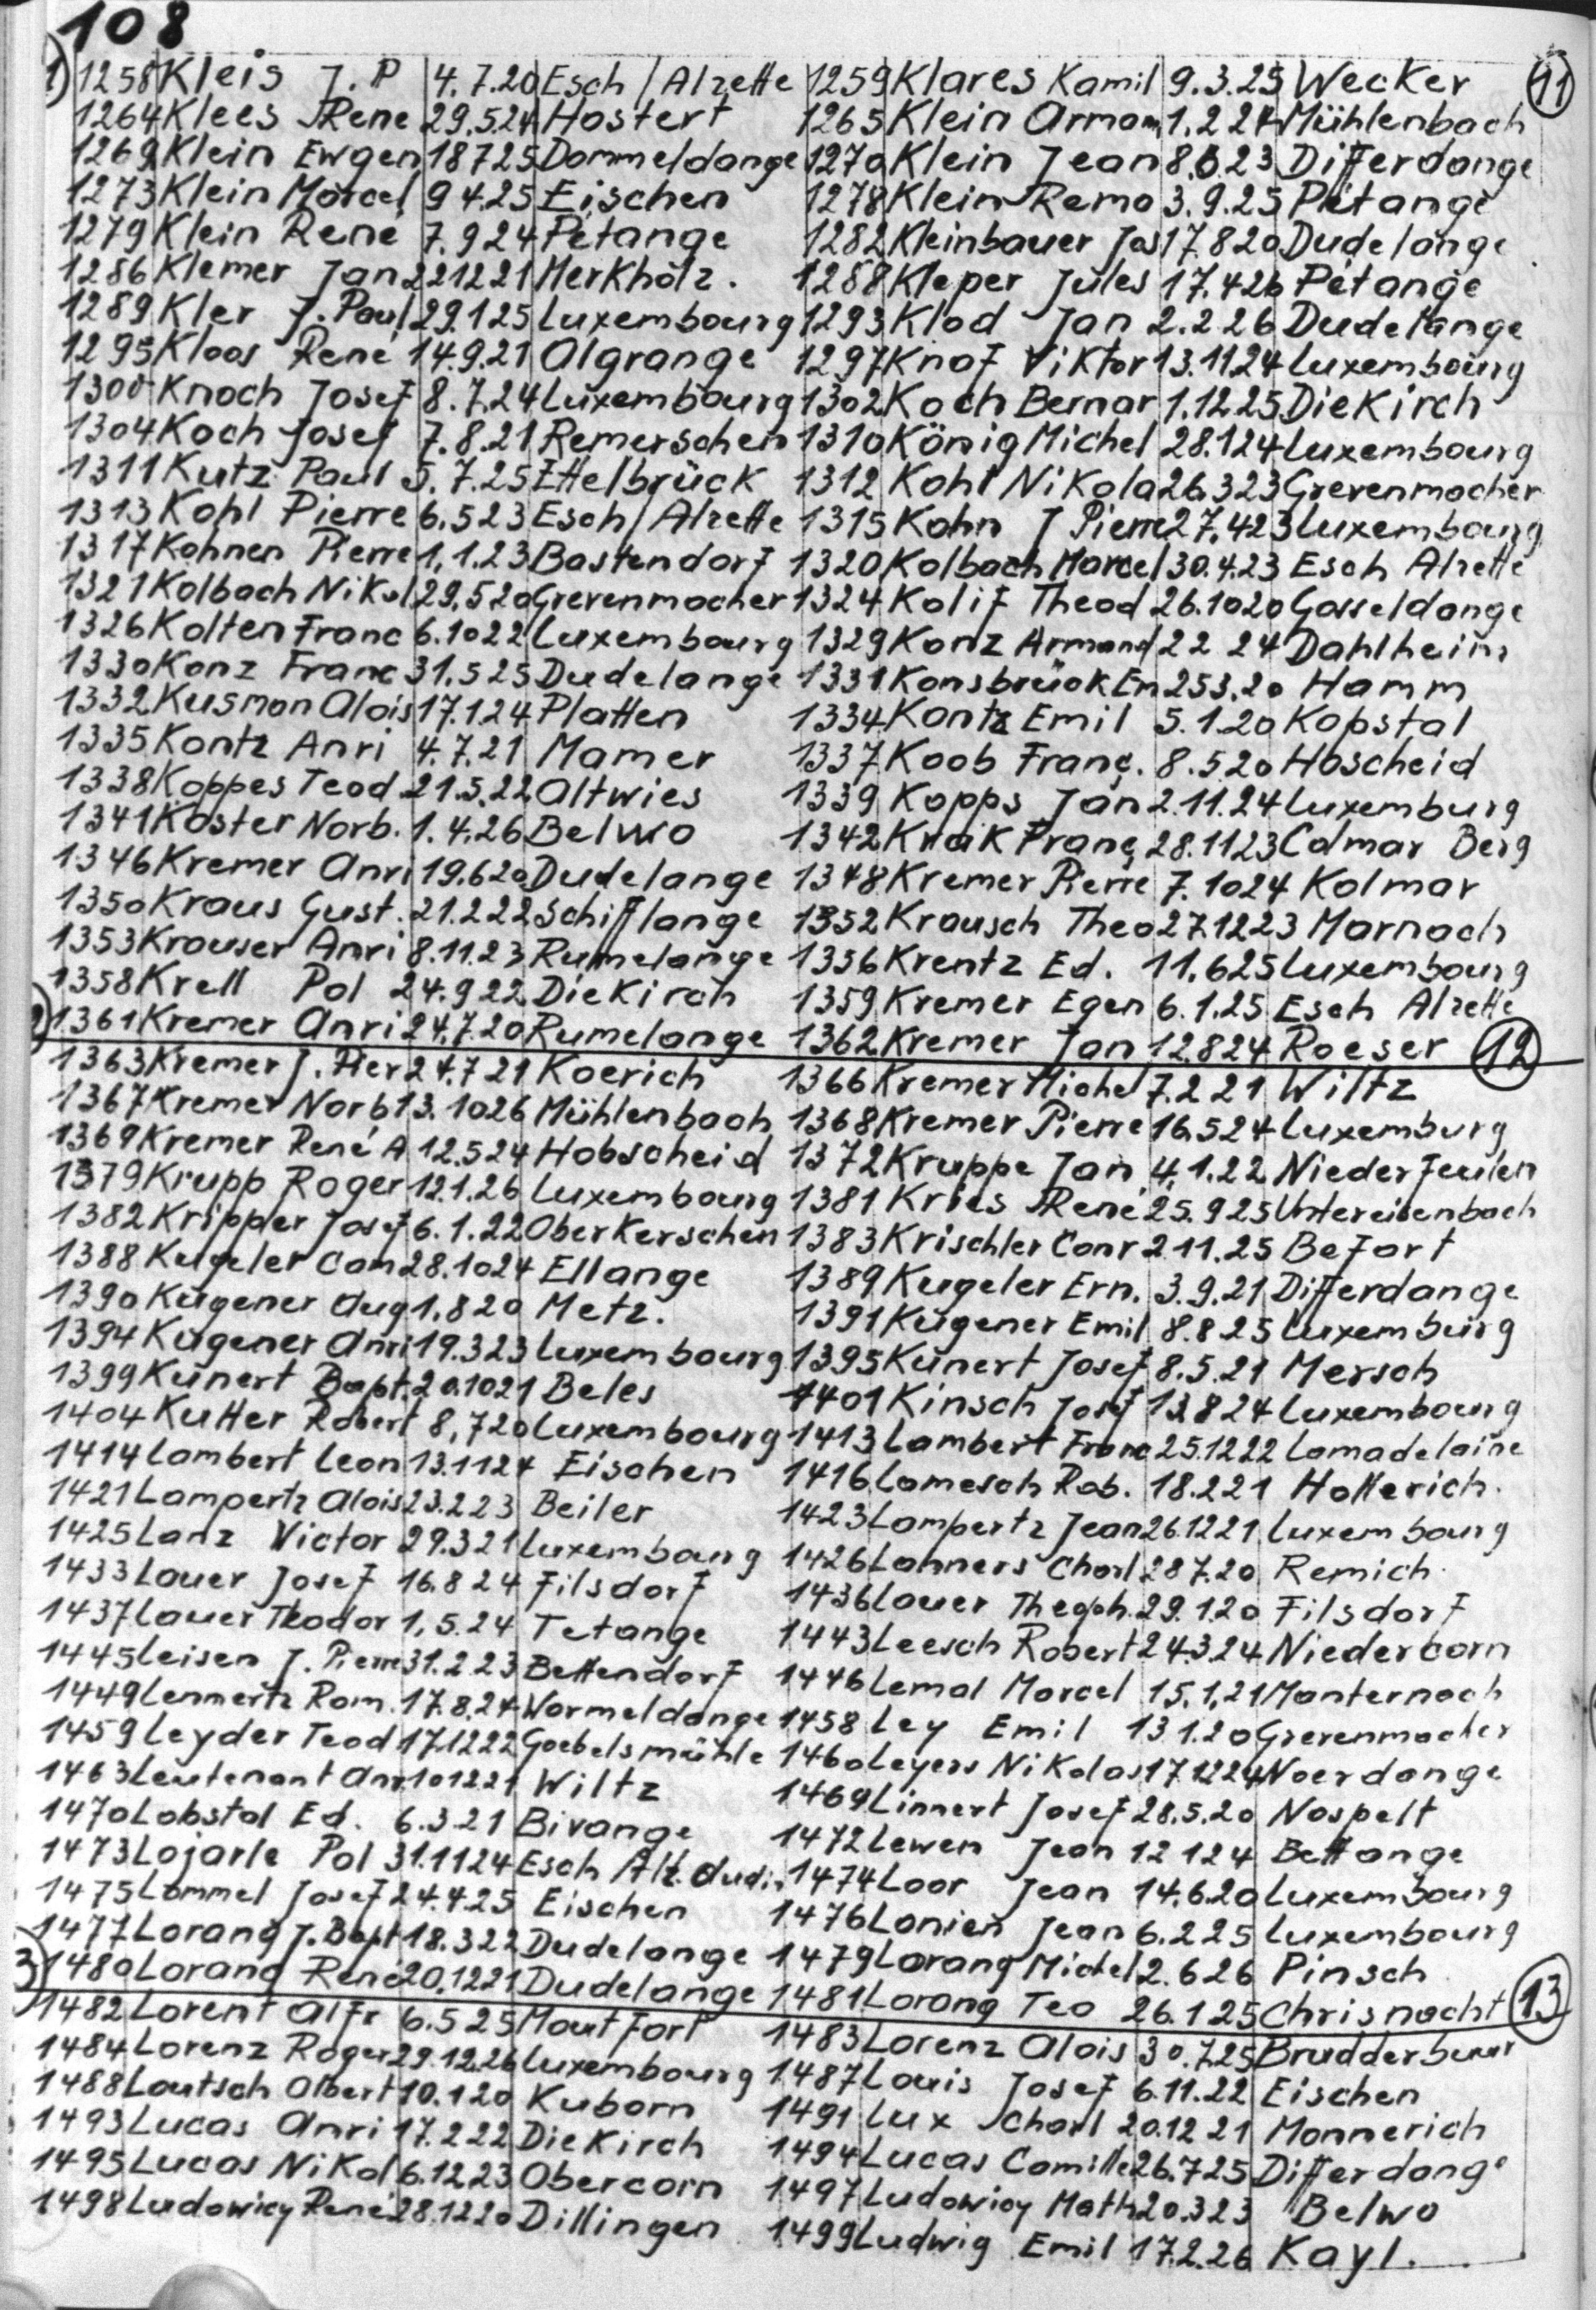 108
1258 Kleis J. P 4.7.20 Esch / Alzette 1259 Klares Kamil 9.3.25 Wecker 11
1264 Klees Rene 29.5.24 Hostert 1265 Klein Armom 1.2 24 Mühlenbach
1269 Klein Ewgen 18725 Dommeldange 1270 Klein Jean 8.6.23 Differdange
1273 Klein Marcel 9 4.25 Eischen 1278 Klein Remo 3.9.25 Pétange
1279 Klein René 7.924 Pétange 1282 Kleinbauer Jos 17.820 Dudelange
1286 Klemer Jan 221221 Merkholz. 1288 Kleper Jules 17.426 Pétange
1289 Kler J. Paul 29.125 Luxembourg 1293 Klod Jan 2.2.26 Dudelange
1295 Kloos René 14.9.21 Algrange 1297 Knof Viktor 13.1124 Luxembourg
1300 Knoch Josef 8.7.24 Luxembourg 1302 Koch Bernar 1.12.25 Diekirch
1304 Koch Josef 7.8.21 Remerschen 1310 König Michel 28.124 Luxembourg
1311 Kutz Paul 5.7.25 Ettelbrück 1312 Kohl Nikola 26.323 Grevenmacher
1313 Kohl Pierre 6.523 Esch/Alzette 1315 Kohn J Pierre 27.423 Luxembourg
1317 Kohnen Pierre 1.1.23 Bastendorf 1320 Kolbach Marcel 30.4.23 Esch Alzette
1321 Kolbach Nikol 29.520 Grevenmacher 1324 Kolif Theod 26.1020 Gosseldange
1326 Kolten Franc 6.1022 Luxembourg 1329 Konz Armand 22 24 Dahlheim
1330 Konz Franc 31.525 Dudelange 1331 Konsbrück Em 253.20 Hamm
1332 Kusmon Alois 17.1.24 Platten 1334 Kontz Emil 5.1.20 Kopstal
1335 Kontz Anri 4.7.21 Mamer 1337 Koob Franç. 8.520 Hoscheid
1338 Koppes Teod 21.5.22 Altwies 1339 Kopps Jan 2.11.24 Luxemburg
1341 Koster Norb. 1.4.26 Belwo 1342 Krak Franç 28.1123 Colmar Berg
1346 Kremer Anri 19.620 Dudelange 1348 Kremer Pierre 7.1024 Kolmar
1350 Kraus Gust. 21.222 Schifflange 1352 Krausch Theo 27.1223 Marnach
1353 Krauser Anri 8.11.23 Rumelange 1356 Krentz Ed. 11.625 Luxembourg
1358 Krell Pol 24.922 Diekirch 1359 Kremer Egen 6.1.25 Esch Alzette
1361 Kremer Anri 24.7.20 Rumelange 1362 Kremer Jan 12.824 Roeser 12
1363 Kremer J. Pier 24.721 Koerich 1366 Kremer Michel 7.2 21 Wiltz
1367 Kremer Norb 13.1026 Mühlenbach 1368 Kremer Pierre 16.524 Luxemburg
1369 Kremer René A 12.524 Hobscheid 1372 Kruppe Jan 4.1.22 Niederfeulen
1379 Krupp Roger 12.1.26 Luxembourg 1381 Kries René 25.925 Untereisenbach
1382 Kripper Josef 6.1.22 Oberkerschen 1383 Krischler Conr 2 11.25 Befort
1388 Kugeler Com 28.1024 Ellange 1389 Kugeler Ern. 3.9.21 Differdange
1390 Kugener Aug 1.820 Metz. 1391 Kugener Emil 8.8 25 Luxemburg
1394 Kugener Anri 19.323 Luxembourg 1395 Kunert Josef 8.5.21 Mersch
1399 Kunert Bapt. 20.1021 Beles 1401 Kinsch Josef 13.824 Luxembourg
1404 Kutter Robert 8.720 Luxembourg 1413 Lambert Franc 25.1222 Lamadelaine
1414 Lambert Leon 13.1124 Eischen 1416 Lamesch Rob. 18.221 Hollerich.
1421 Lampertz Alois 23.223 Beiler 1423 Lampertz Jean 26.1221 Luxembourg
1425 Lanz Victor 29.321 Luxembourg 1426 Lanners Charl 287.20 Remich.
1433 Lauer Josef 16.824 Filsdorf 1436 Lauer Theoph. 29.120 Filsdorf
1437 Lauer Theodor 1.5.24 Tetange 1443 Leesch Robert 24.3.24 Niedercorn
1445 Leisen J. Pierre 31.2.23 Bettendorf 1446 Lemal Marcel 15.1.21 Manternach
1449 Lennertz Rom. 17.8.24 Wormeldange 1458 Ley Emil 13 1.20 Grevenmacher
1459 Leyder Teod 17.1222 Goebelsmühle 1460 Leyers Nikolas 17.1224 Noerdange
1463 Leutenant Anr 101221 Wiltz 1469 Linnert Josef 28.5.20 Nospelt
1470 Lobstal Ed. 6.321 Bivange 1472 Lewen Jean 12 124 Bettange
1473 Lojarle Pol 31.1124 Esch Alz. 1474 Loor Jean 14.6.20 Luxembourg
1475 Lommel Josef 24.4.25 Eischen 1476 Lonien Jean 6.225 Luxembourg
1477 Lorang J. Bapt 18.322 Dudelange 1479 Lorang Michel 2.626 Pinsch
3 1480 Lorang René 20.1221 Dudelange 1481 Lorang Teo 26.1.25 Chrisnacht 13
1482 Lorent Alfr 6.525 Moutfort 1483 Lorenz Alois 30.7.25
1484 Lorenz Roger 29.12.26 Luxembourg 1487 Louis Josef 6.11.22 Eischen
1488 Loutsch Albert 10.120 Kuborn 1491 Lux Charl 20.12 21 Monnerich
1493 Lucas Anri 17.222 Diekirch 1494 Lucas Camille 26.725 Differdange
1495 Lucas Nikol 6.1223 Obercorn 1497 Ludowicy Math 20.323 Belwo
1498 Ludowicy René 28.1220 Dillingen 1499 Ludwig Emil 17.2.26 Kayl.